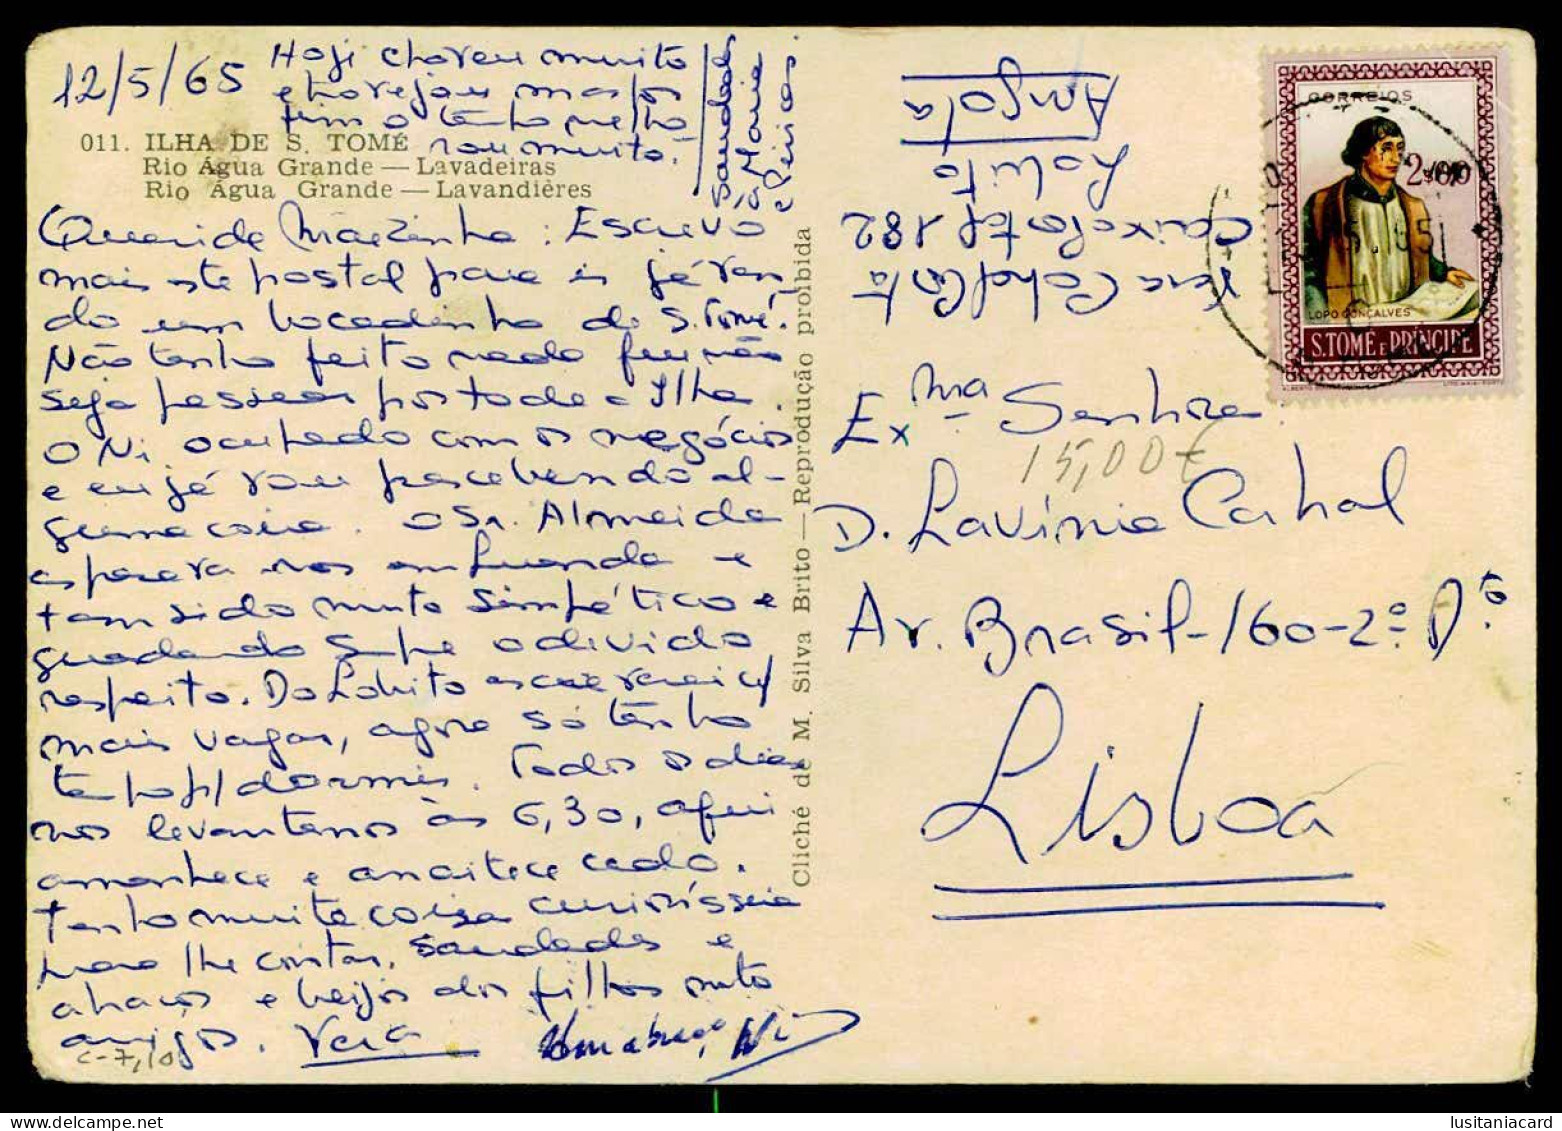 12/5/65
Hoje choveu muito
e trovejou mas por
fim o tenho melho
rou muito.
Saudades
à Maria
e Peixoas.
011. ILHA DE S. TOMÉ
Rio Água Grande — Lavadeiras
Rio Água Grande — Lavandières
Querida Mãezinha: Escrevo
mais este postal para ir já ven
do um bocadinho de S. Tomé.
Não tenho feito nada que não
seja passear por toda a Ilha.
O Ni ocupado com os negócios
e eu já vou percebendo al-
guma coisa. O Sr. Almeida
esperava nos em Luanda e
tem sido muito simpático e
guardando sempre o devido
respeito. Do Lobito escreverei c/
mais vagar, agora só tenho
tempo p/ dormir. Todos os dias
nos levantamos às 6,30, aqui
amanhece e anoitece cedo.
Tenho muita coisa curiosíssima
para lhe contar. Saudades e
abraços e beijos dos filhos muito
amigos. Vera Um abraço, Ni
C-7,10
Cliché de M. Silva Brito — Reprodução proibida
Vera Cabral Costa
Caixa Postal 182
Lobito
Angola
CORREIOS
2$00
LOPO GONÇALVES
S. TOMÉ E PRÍNCIPE
Exma Senhora
15,00€
D. Lavínia Cabral
Av. Brasil-160-2º Dto
Lisboa
lusitaniacard.com